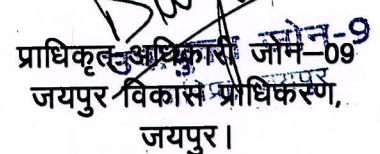 प्राधिकृत अधिकारी जोन-09
जयपुर विकास प्राधिकरण,
जयपुर।